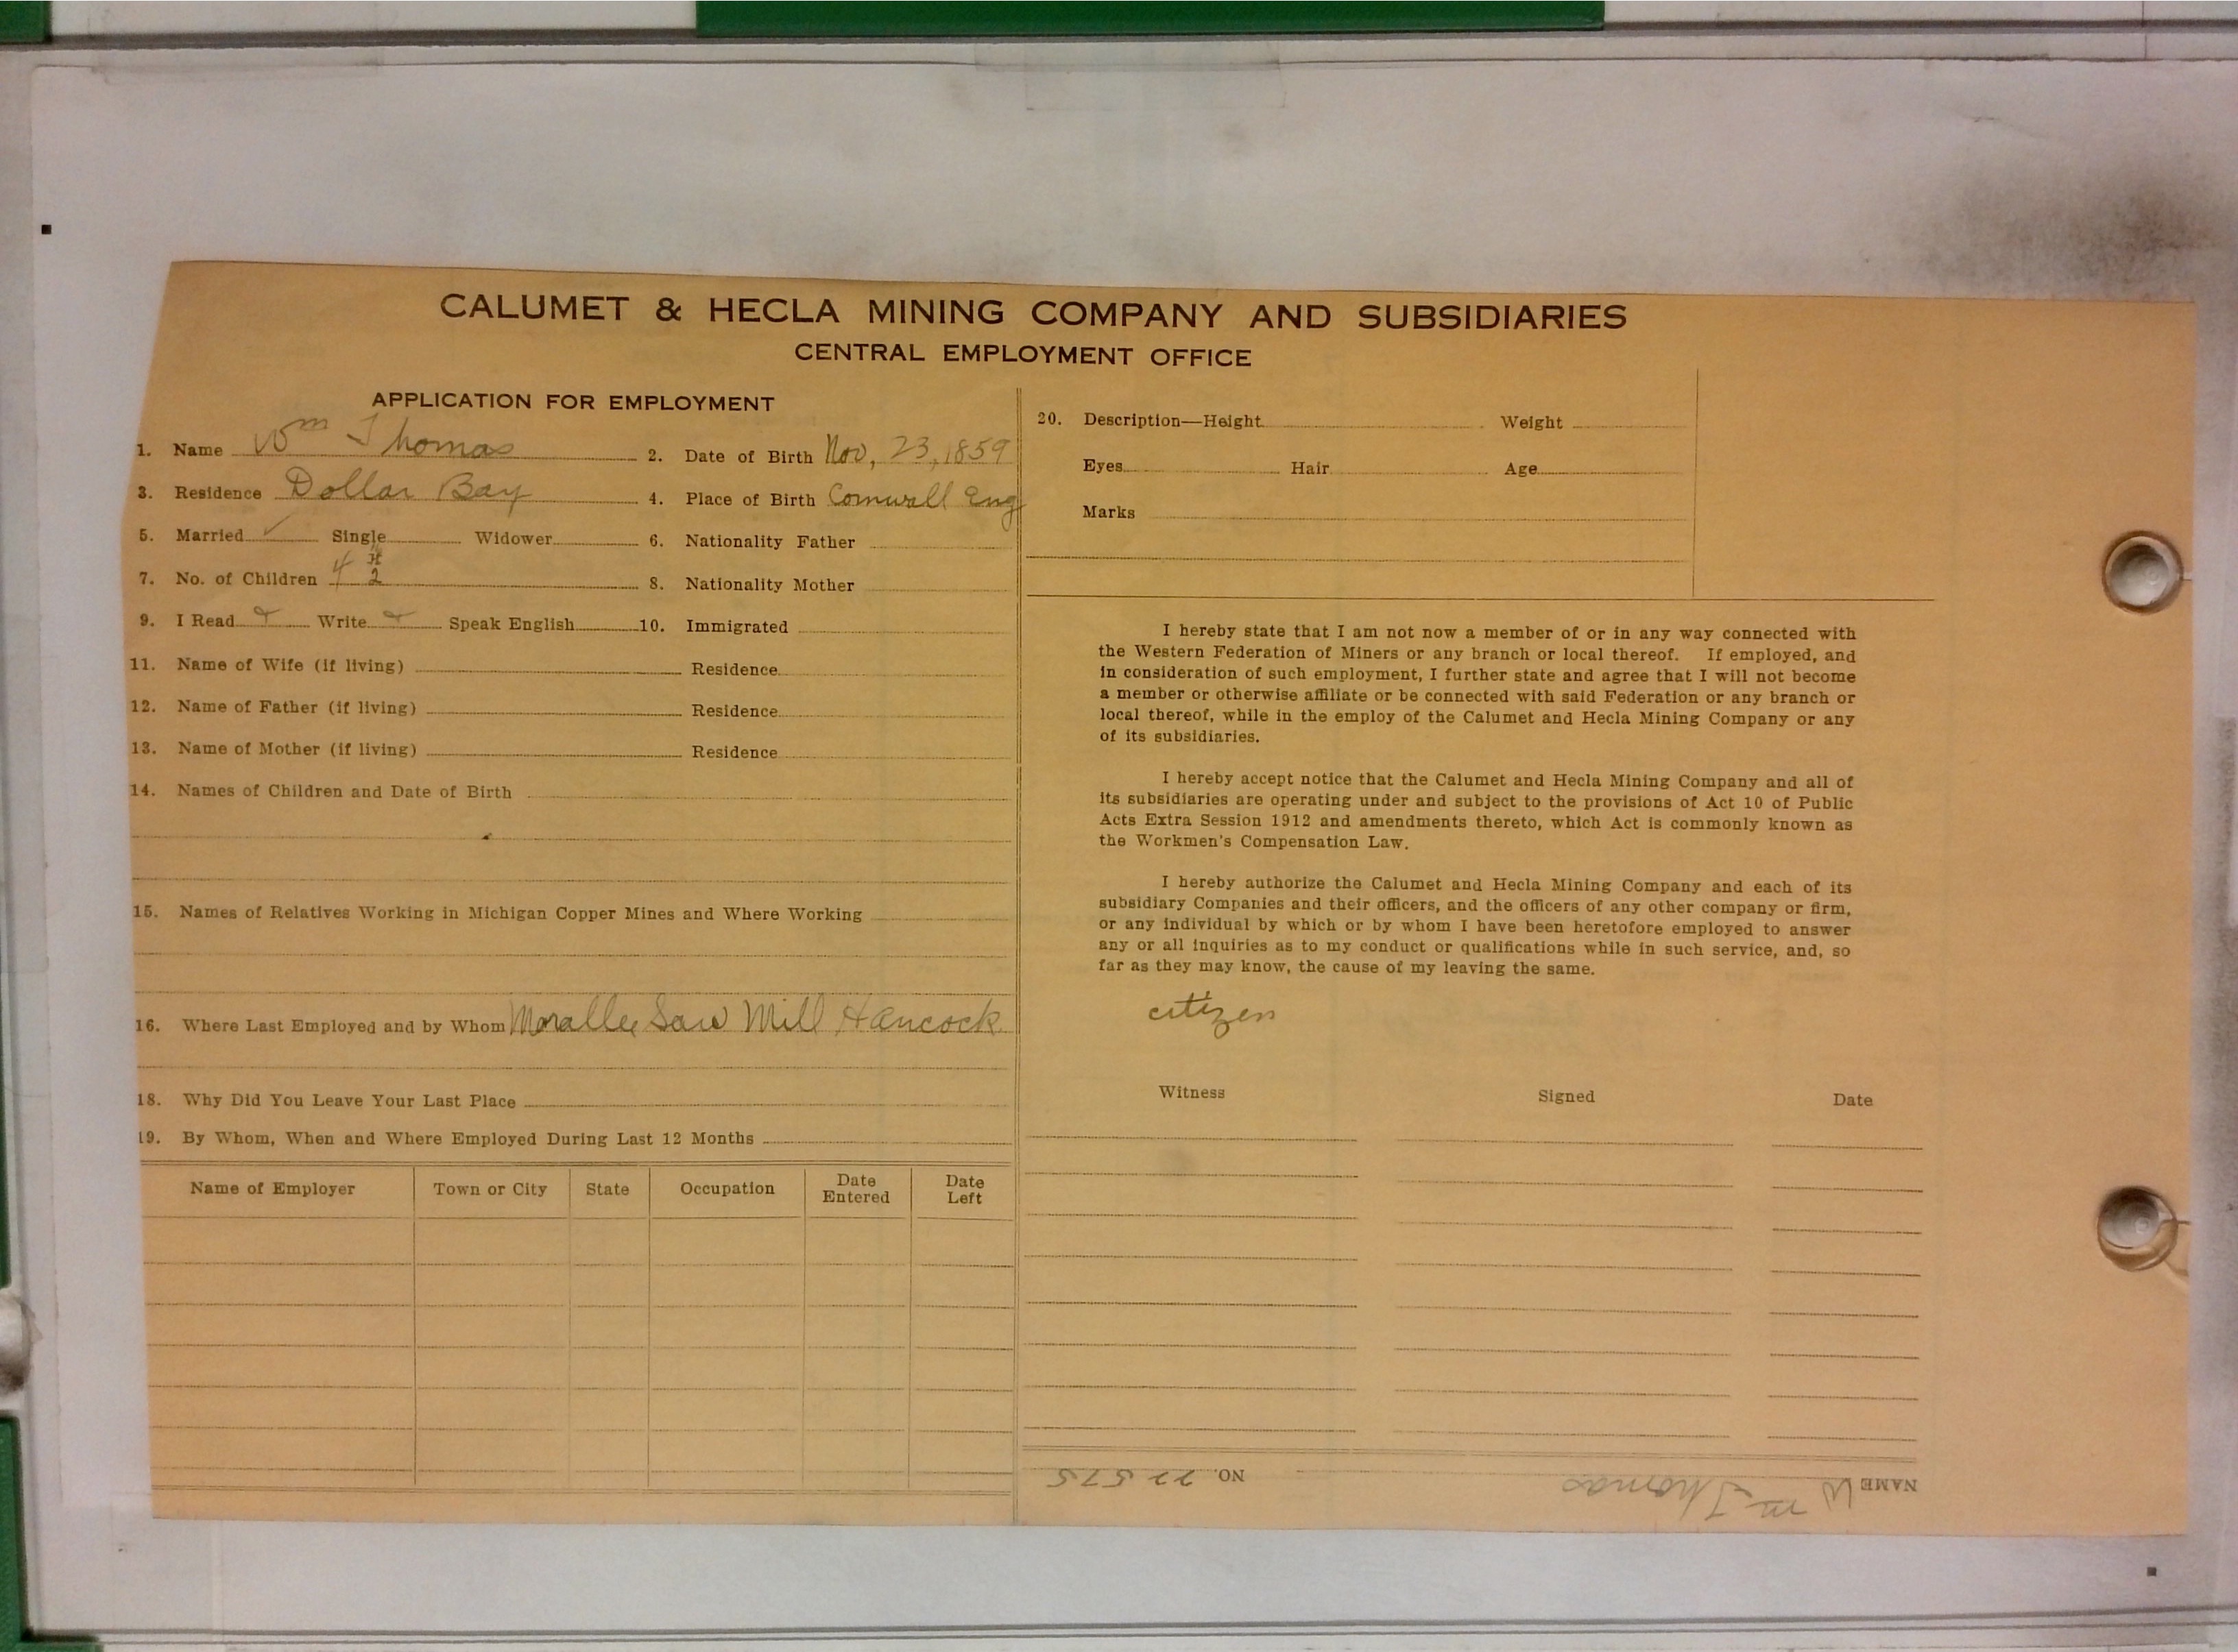 CALUMET & HECLA MINING COMPANY AND SUBSIDIARIES
CENTRAL EMPLOYMENT OFFICE
APPLICATION FOR EMPLOYMENT
1. Name Wm Thomas 2. Date of Birth Nov, 23, 1859
3. Residence Dollar Bay 4. Place of Birth Cornwall Eng
5. Married ✓ Single Widower 6. Nationality Father
7. No. of Children 4 2 8. Nationality Mother
9. I Read Write Speak English 10. Immigrated
11. Name of Wife (if living) Residence
12. Name of Father (if living) Residence
13. Name of Mother (if living) Residence
14. Names of Children and Date of Birth
15. Names of Relatives Working in Michigan Copper Mines and Where Working
16. Where Last Employed and by Whom Saw Mill Hancock
18. Why Did You Leave Your Last Place
19. By Whom, When and Where Employed During Last 12 Months
Name of Employer Town or City State Occupation Date Entered Date Left
20. Description—Height Weight
Eyes Hair Age
Marks
I hereby state that I am not now a member of or in any way connected with
the Western Federation of Miners or any branch or local thereof. If employed, and
in consideration of such employment, I further state and agree that I will not become
a member or otherwise affiliate or be connected with said Federation or any branch or
local thereof, while in the employ of the Calumet and Hecla Mining Company or any
of its subsidiaries.
I hereby accept notice that the Calumet and Hecla Mining Company and all of
its subsidiaries are operating under and subject to the provisions of Act 10 of Public
Acts Extra Session 1912 and amendments thereto, which Act is commonly known as
the Workmen's Compensation Law.
I hereby authorize the Calumet and Hecla Mining Company and each of its
subsidiary Companies and their officers, and the officers of any other company or firm,
or any individual by which or by whom I have been heretofore employed to answer
any or all inquiries as to my conduct or qualifications while in such service, and, so
far as they may know, the cause of my leaving the same.
citizen
Witness Signed Date
NAME Wm Thomas NO. 22575